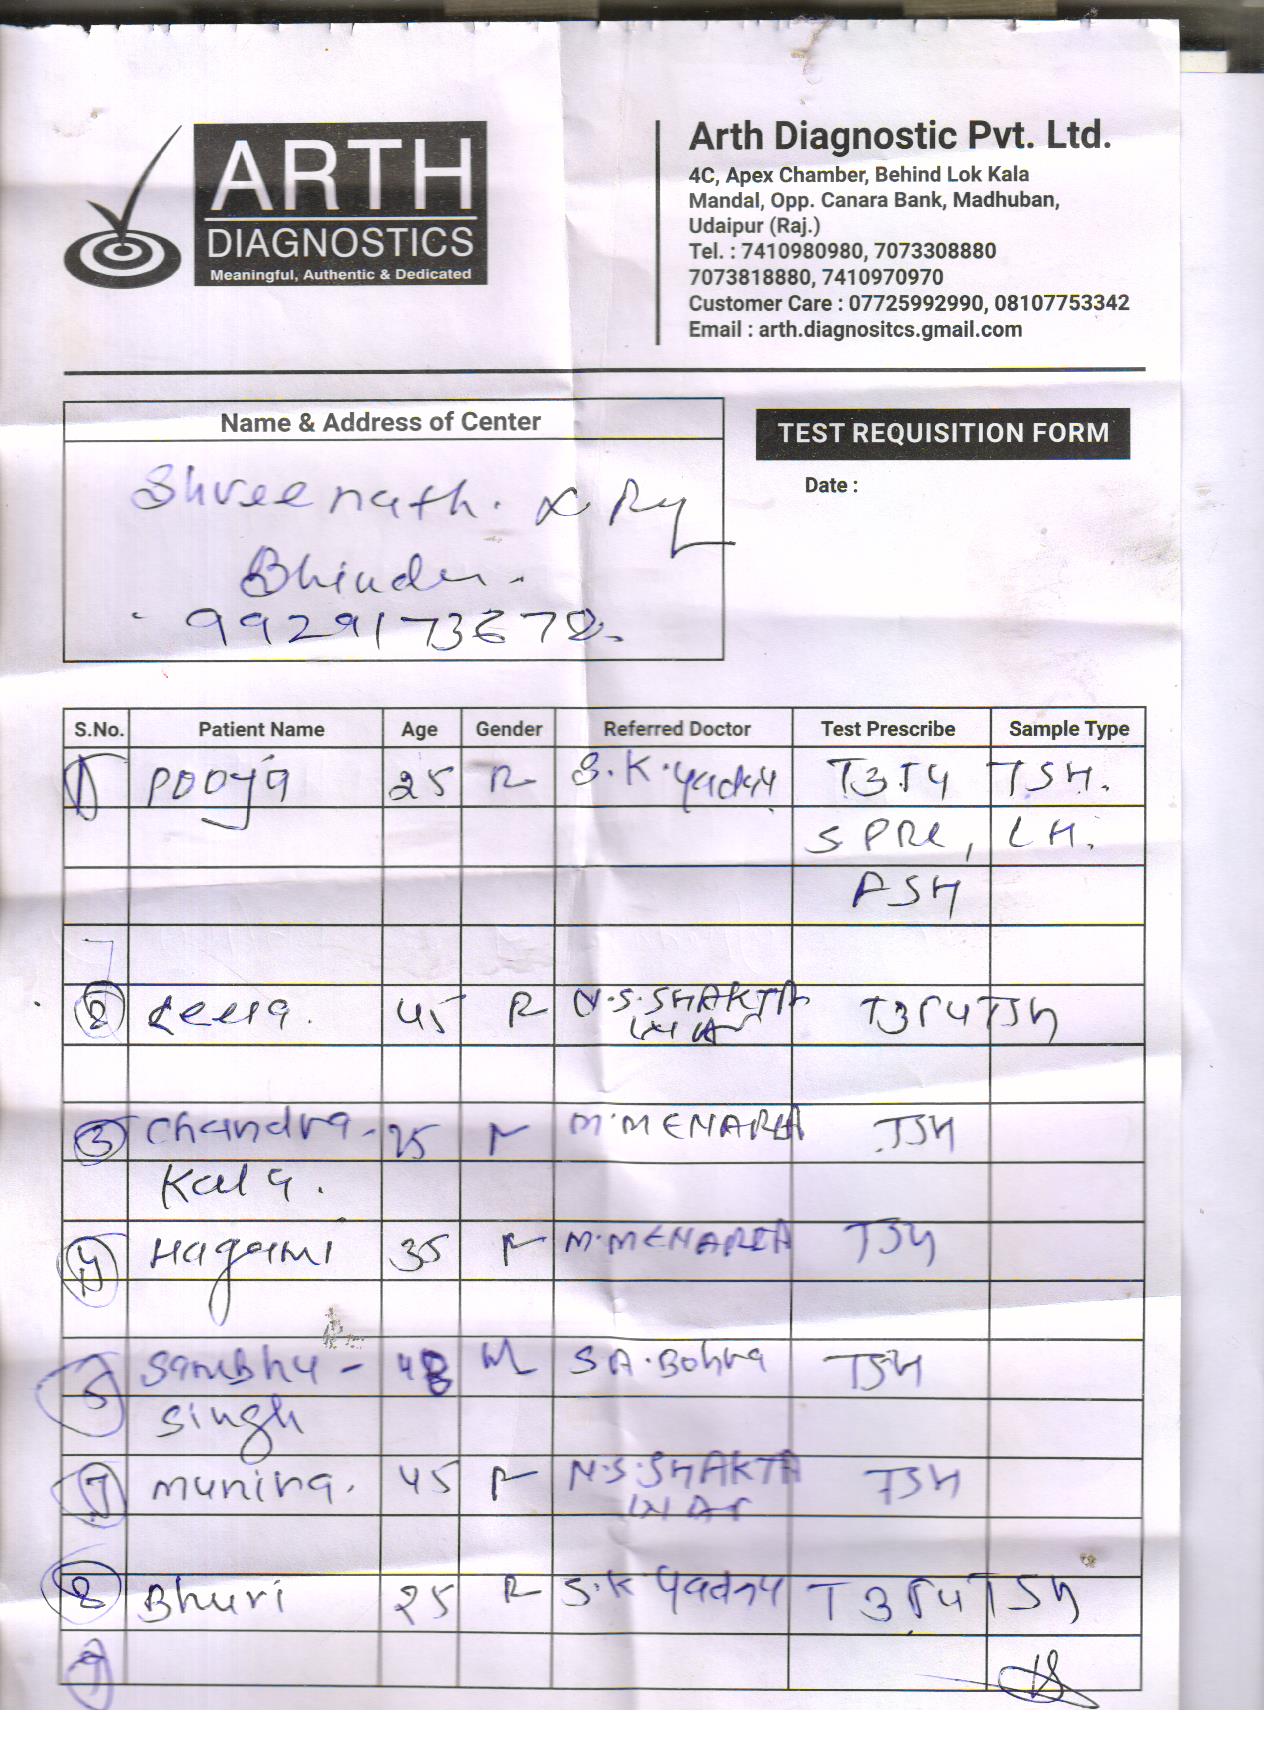 ARTH
DIAGNOSTICS
Meaningful, Authentic & Dedicated
Arth Diagnostic Pvt. Ltd.
4C, Apex Chamber, Behind Lok Kala
Mandal, Opp. Canara Bank, Madhuban,
Udaipur (Raj.)
Tel. : 7410980980, 7073308880
7073818880, 7410970970
Customer Care : 07725992990, 08107753342
Email : arth.diagnositcs.gmail.com
Name & Address of Center
TEST REQUISITION FORM
Date :
Shreenath. X Ry
Bhinder.
9929173678.
S.No. Patient Name Age Gender Referred Doctor Test Prescribe Sample Type
1 Pooja 25 F S.K.Yadav T3T4 TSH.
S PRL, LH.
FSH
2 45 F N.S.SHAKTA T3T4TSH
WAT
3 Chandra- 25 F M.MENARIA TSH
Kala.
4 Hagami 35 F M.MENARIA TSH
5 Sambhu- 48 M S A.Bohra TSH
Singh
7 Munira. 45 F N.S.SHAKTA TSH
WAT
8 Bhuri 25 F S.K Yadav T3T4TSH
9